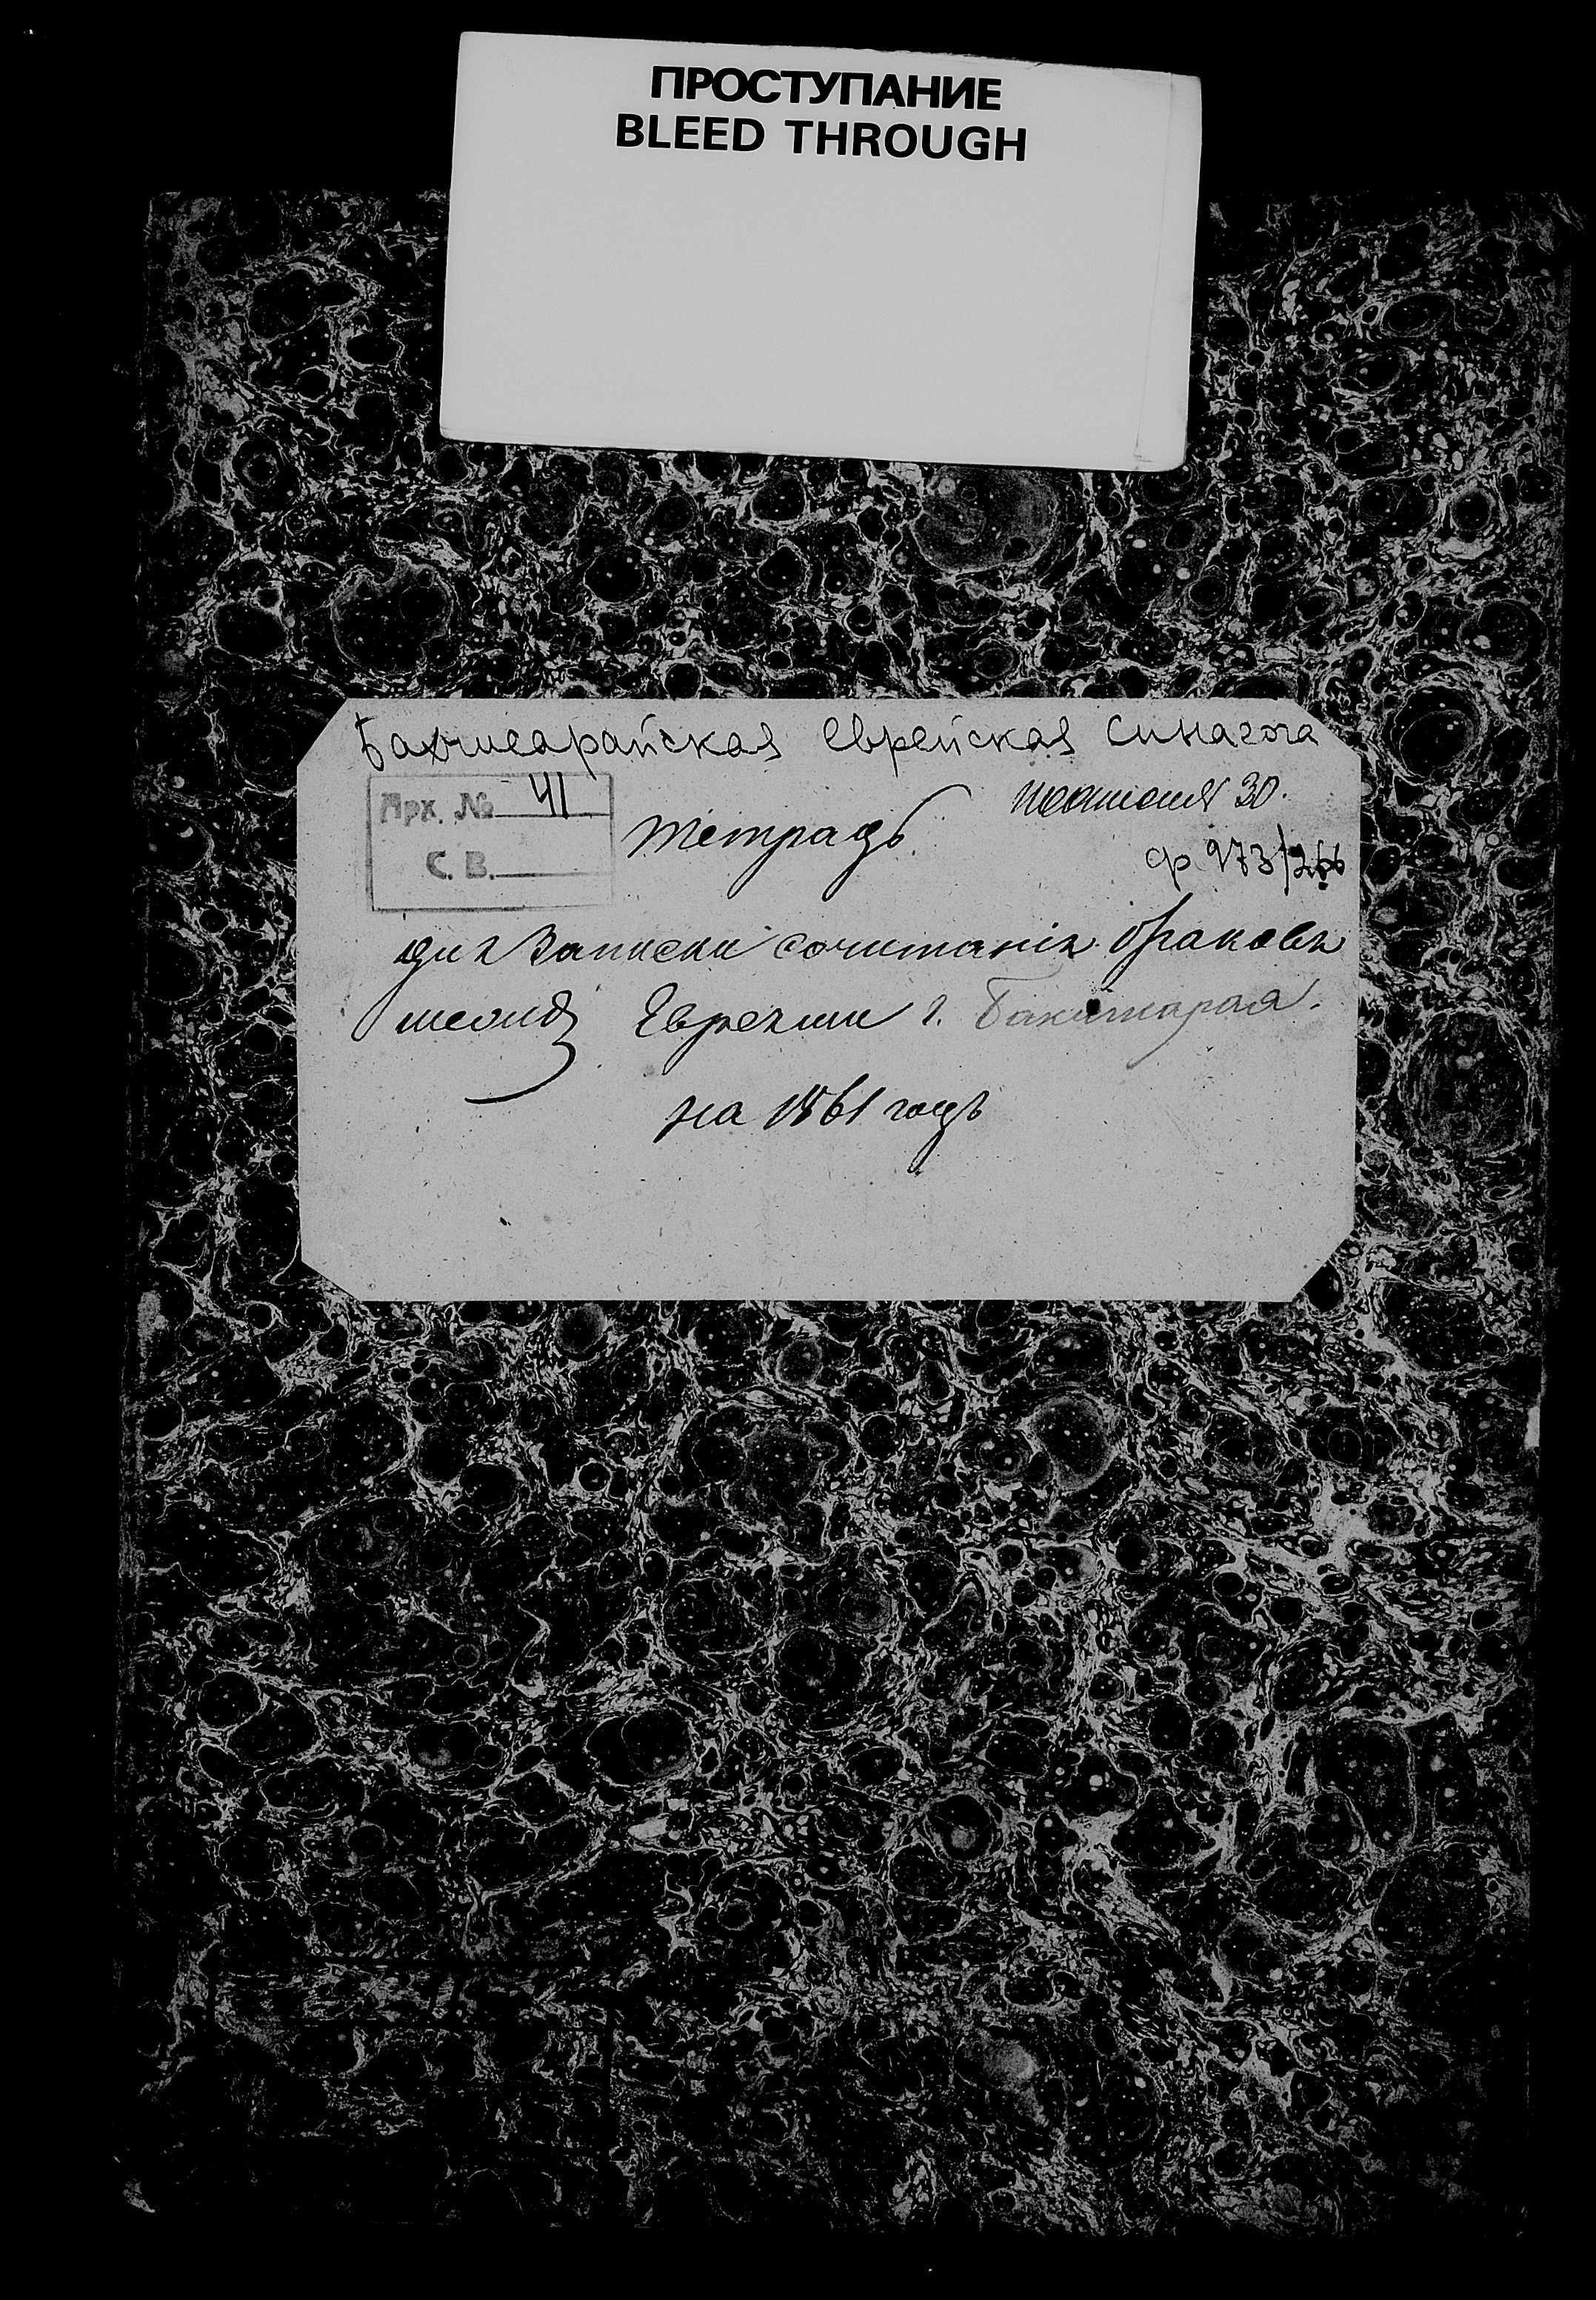 ПРОСТУПАНИЕ
BLEED THROUGH
Бахчисарайская Еврейская Синагога
Арх. № 41
С. В.
30.
Тетрадь
ф 273/266
для Записки сочетанія браковъ
между Евреями г. Бахчисарая.
на 1861 годъ